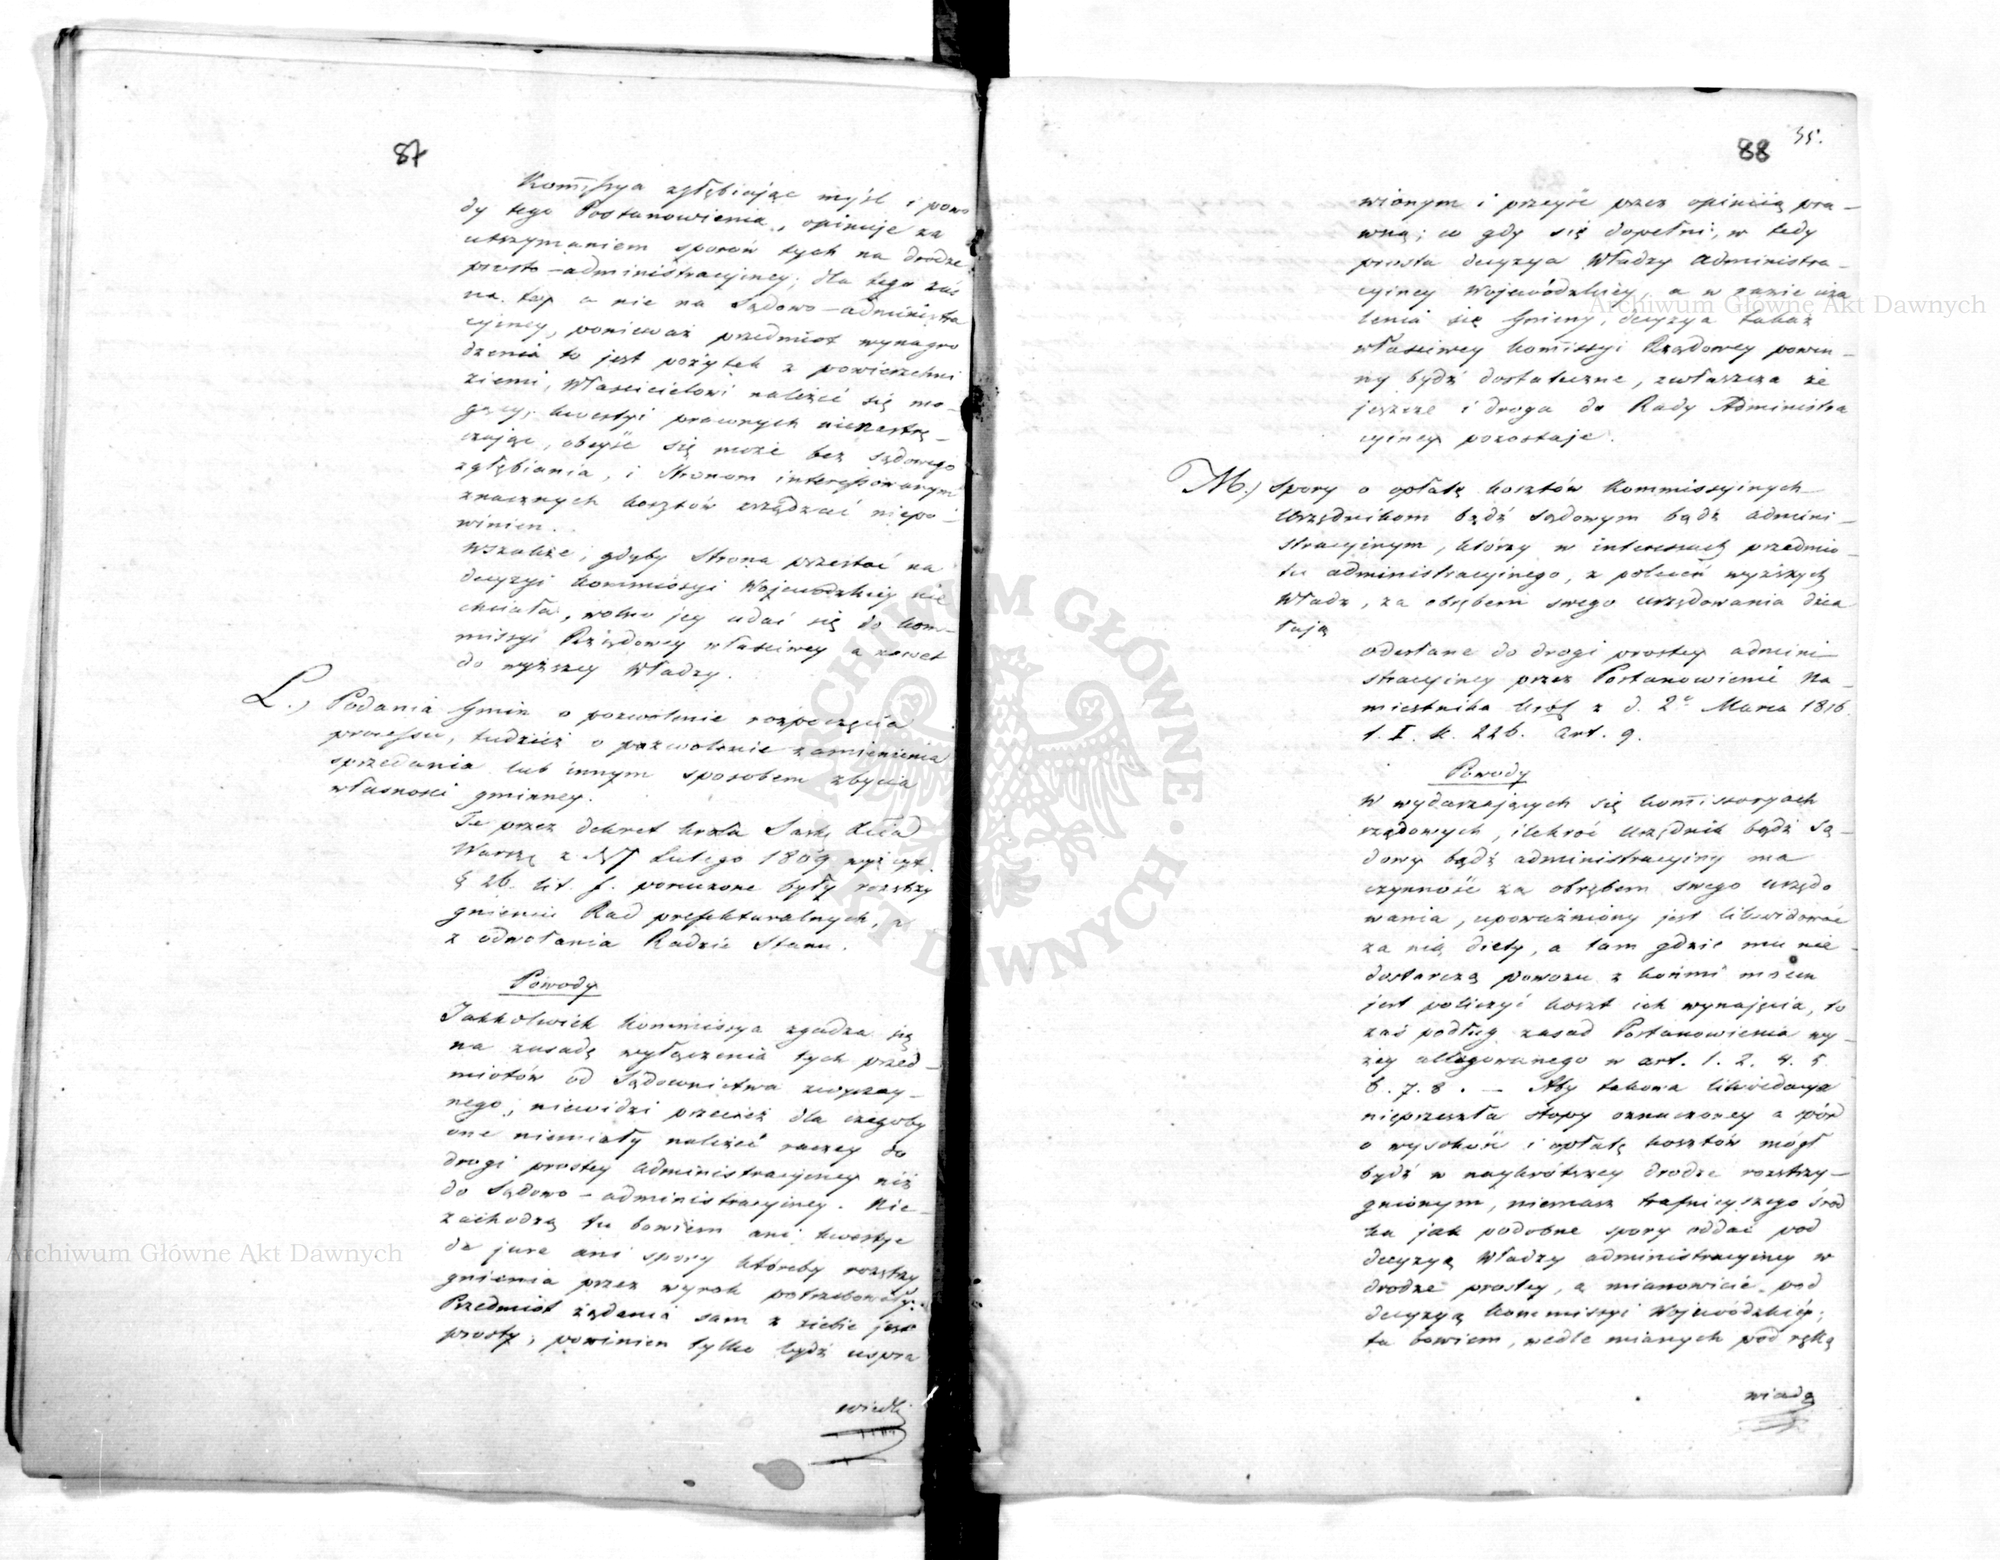 87
Kommissya zgłębiając myśl i powo
dy tego Postanowienia, opiniuje za
utrzymaniem sporów tych na drodze
prosto-administracyiney; dla tego zaś
na tey a nie na Sądowo-administra
cyiney, ponieważ przedmiot wynagro
dzenia to jest pożytek z powierzchni
ziemi, Właścicielowi należeć się mo-
gący, kwestyi prawnych nienastrę-
czając, obeyść się może bez sądowego
zgłębiania, i Stronom interessowanym
znacznych kosztów zrządzać niepo-
winien.
Wszakże, gdyby Strona przestać na
decyzyi Kommissyi Wojewódzkiey nie
chciała, wolno jey udać się do Kom-
missyi Rządowey właściwey a nawet
do wyższey Władzy.
L.) Podania Gmin o pozwolenie rozpoczęcia
processu, tudzież o pozwolenie zamienienia
sprzedania lub innym sposobem zbycia
własności gminney.
Te przez dekret Króla Saski Xcia
Warszę z d. 7 Lutego 1809 wyż cyt.
§ 26. lit. f. poruczone były rozstrzy
gnieniu Rad prefekturalnych, a
z odwołania Radzie Stanu.
Powody
Jakkolwiek Kommissya zgadza się
na zasadę wyłączenia tych przed-
miotów od Sądownictwa zwyczay-
nego, niewidzi przecież dla czegoby
one niemiały należeć raczey do
drogi prostey administracyiney niż
do Sądowo-administracyiney. Nie-
zachodzą tu bowiem ani kwestye
de jure ani spory któreby rozstrzy
gnienia przez wyrok potrzebowały.
Przedmiot żądania sam z siebie jest
prosty, powinien tylko bydź uspra
wiedli
88 35.
wionym i przeyść przez opiniią pra-
wną; co gdy się dopełni, w tedy
prosta decyzya Władzy Administra-
cyiney Wojewódzkiey, a w razie uża
lenia się Gminy, decyzya takaż
właściwey Kommissyi Rządowey powin-
ny bydź dostateczne, zwłaszcza że
jeszcze i droga do Rady Administra
cyiney pozostaje.
M.) Spory o opłatę kosztów Kommissyinych
Urzędnikom bądź Sądowym bądź admini-
stracyinym, którzy w interessach przedmio-
tu administracyinego, z poleceń wyższych
Władz, za obrębem swego urzędowania dzia
łają
odesłane do drogi prostey admini
stracyiney przez Postanowienie Na-
miestnika Król z d. 2o Marca 1816.
t. I. k. 226. art. 9.
Powody
W wydarzających się kommissoryach
rządowych, ilekroć Urzędnik bądź Są-
dowy bądź administracyiny ma
czynność za obrębem swego urzędo
wania, upoważniony jest likwidować
za nią diety, a tam gdzie mu nie-
dostarczą powozu z końmi mocen
jest policzyć koszt ich wynajęcia, to
zaś podług zasad Postanowienia wy-
żey allegowanego w art. 1. 2. 4. 5.
6. 7. 8. - Aby takowa likwidacya
nieprzeszła stopy oznaczoney a spór
o wysokość i opłatę kosztów mógł
bydź w naykrótszey drodze rozstrzy-
gnionym, niemasz trafnieyszego środ
ka jak podobne spory oddać pod
decyzyą Władzy administracyiney w
drodze prostey, a mianowicie pod
decyzyą Kommissyi Wojewódzkiéy;
ta bowiem, wedle mianych pod ręką
wiado
Archiwum Główne Akt Dawnych
Archiwum Główne Akt Dawnych
ARCHIWUM GŁÓWNE · AKT DAWNYCH ·